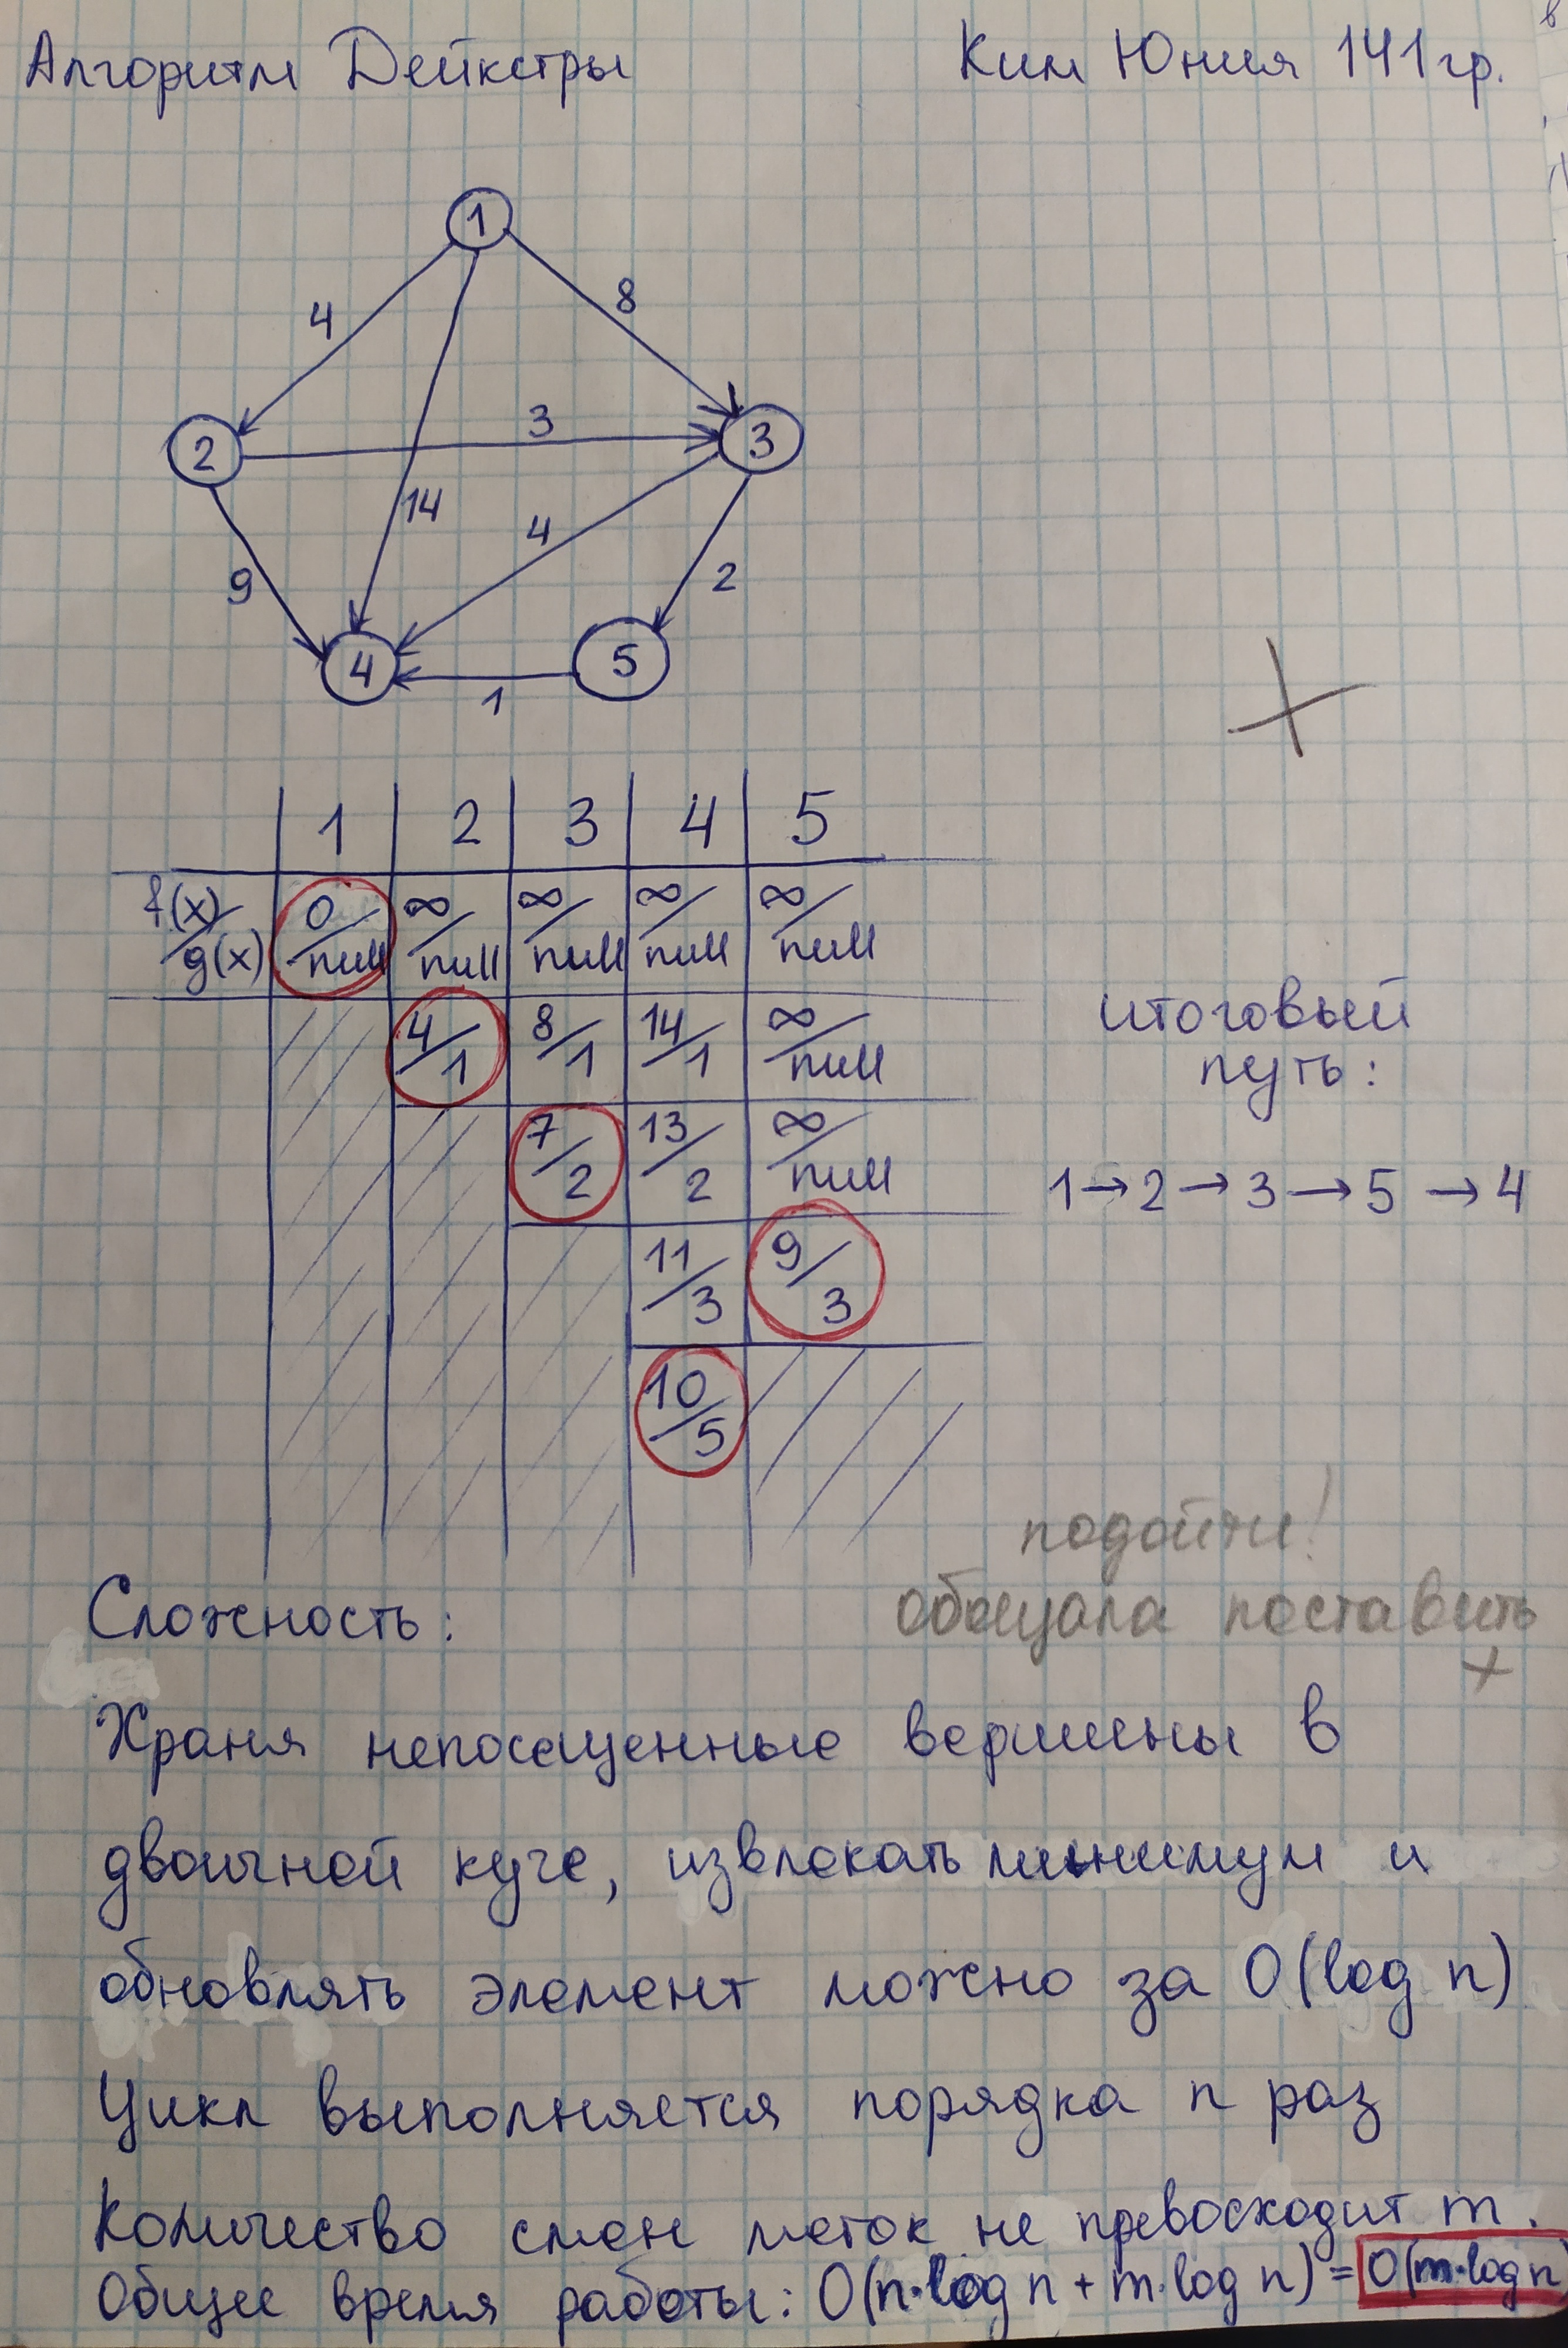 Алгоритм Дейкстры
Ким Юния 141гр.
1
4
8
2
3
3
14
4
9
2
4
5
1
1 2 3 4 5
f(x)/g(x) 0/null ∞/null ∞/null ∞/null ∞/null
4/1 8/1 14/1 ∞/null
7/2 13/2 ∞/null
11/3 9/3
10/5
итоговый
путь:
1→2→3→5→4
подойти!
обещала поставить
+
Сложность:
Храня непосещенные вершины в
двоичной куче, извлекать минимум и
обновлять элемент можно за O(log n)
Цикл выполняется порядка n раз
Количество смен меток не превосходит m.
Общее время работы: O(n·log n + m·log n) = O(m·log n)